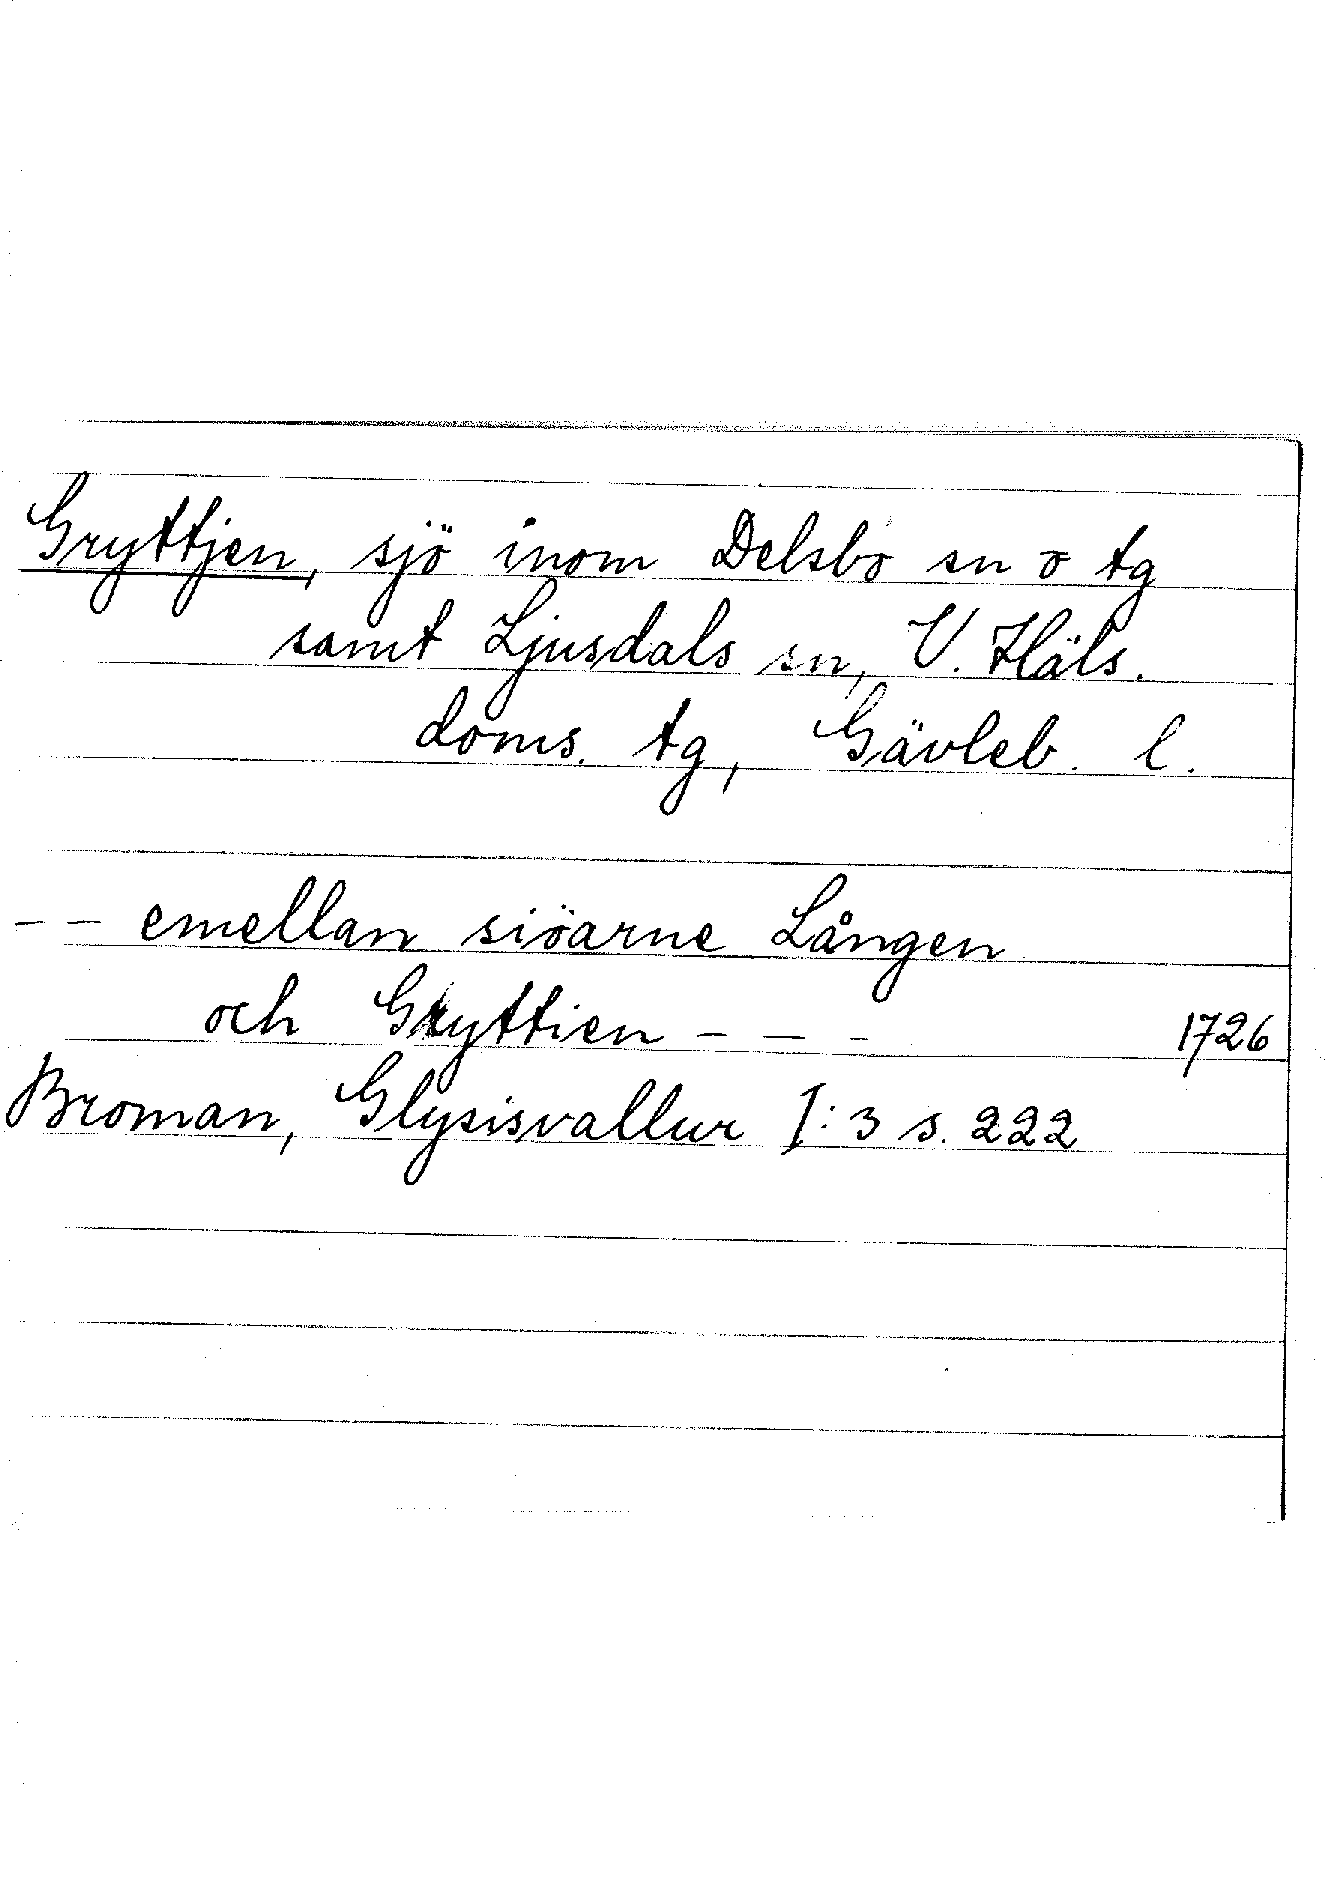 Gryttjen, sjö inom Delsbo sn o tg
samt Ljusdals sn, V. Häls.
doms. tg, Gävleb. l.
-- emellan siöarne Lången
och Gryttien ---
1726
Broman, Glysisvallur I:3 s. 222